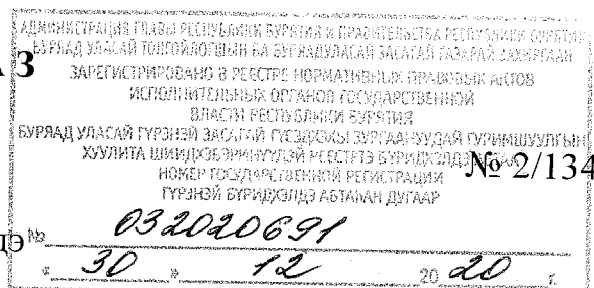 АДМИНИСТРАЦИЯ ГЛАВЫ РЕСПУБЛИКИ БУРЯТИЯ И ПРАВИТЕЛЬСТВА РЕСПУБЛИКИ БУРЯТИЯ
БУРЯАД УЛАСАЙ ТОЛГОЙЛОГШЫН БА БУРЯАД УЛАСАЙ ЗАСАГАЙ ГАЗАРАЙ ЗАХИРГААН
З
ЗАРЕГИСТРИРОВАНО В РЕЕСТРЕ НОРМАТИВНЫХ ПРАВОВЫХ АКТОВ
ИСПОЛНИТЕЛЬНЫХ ОРГАНОВ ГОСУДАРСТВЕННОЙ
ВЛАСТИ РЕСПУБЛИКИ БУРЯТИЯ
БУРЯАД УЛАСАЙ ГҮРЭНЭЙ ЗАСАГАЙ ГҮЙСЭДХЭХЫ ЗУРГААНУУДАЙ ГУРИМШУУЛГЫН
ХУУЛИТА ШИИДХЭБЭРИНҮҮДЭЙ РЕЕСТРТЭ БҮРИДХЭЛДЭ
№ 2/134
НОМЕР ГОСУДАРСТВЕННОЙ РЕГИСТРАЦИИ
ГҮРЭНЭЙ БҮРИДХЭЛДЭ АБТАҺАН ДУГААР
дэ № 032020691
« 30 » 12 20 20 г.